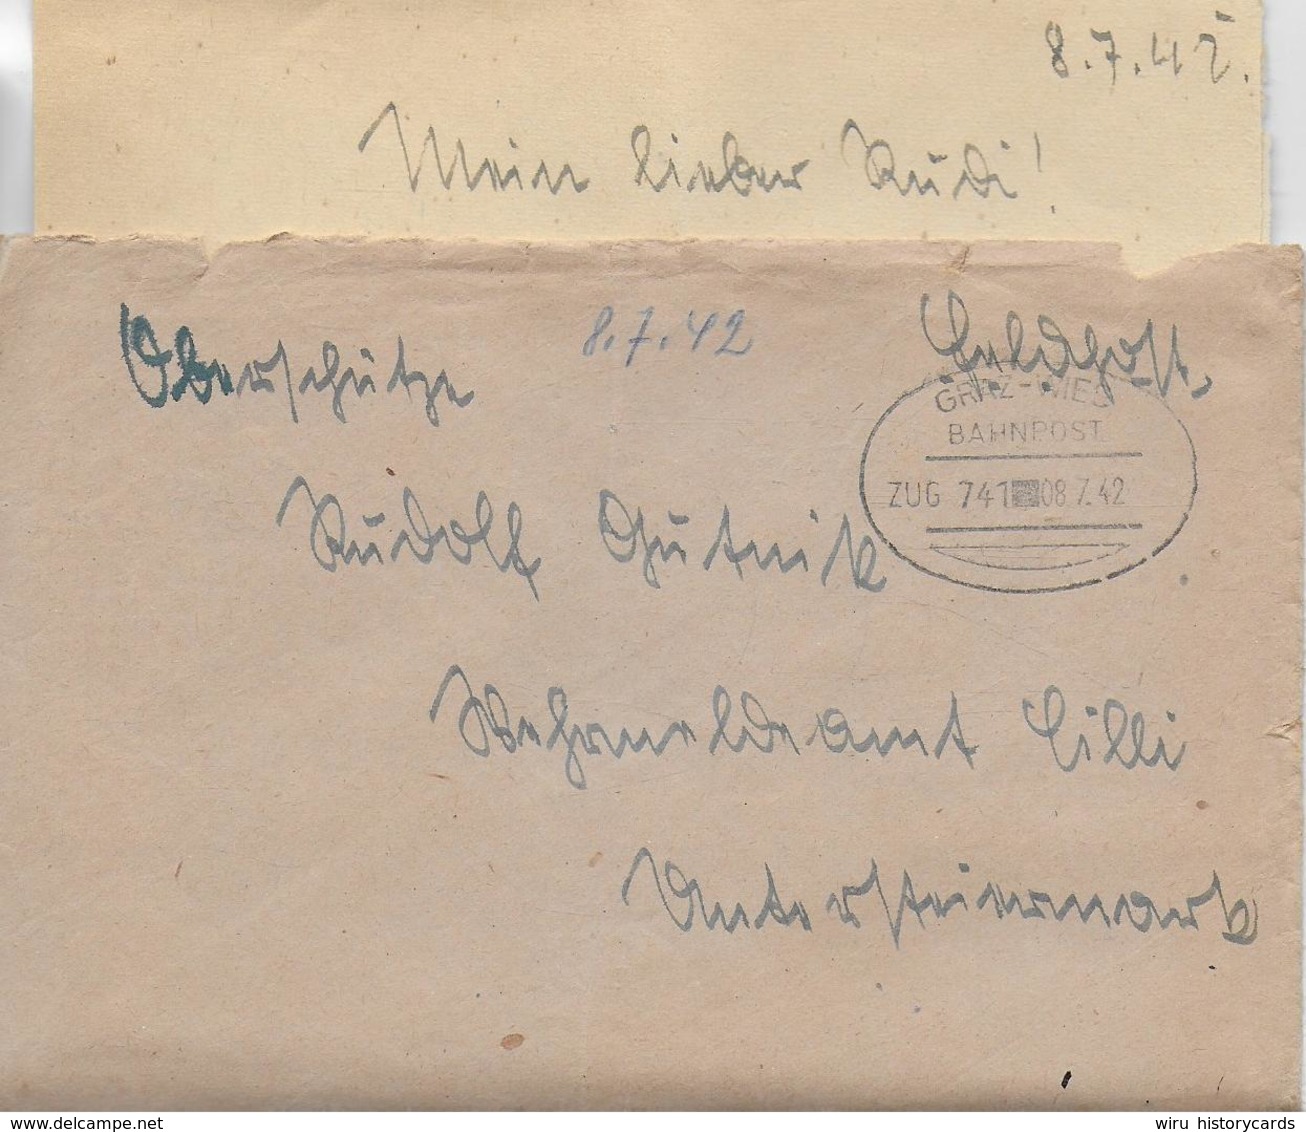 8.7.42.
Mein lieber Rudi!
Oberschütze
8.7.42
Feldpost.
GRAZ-WIES
BAHNPOST
ZUG 741 08.7.42
Rudolf Gutnik
Wehrmeldeamt Cilli
Untersteiermark
www.delcampe.net
wiru historycards